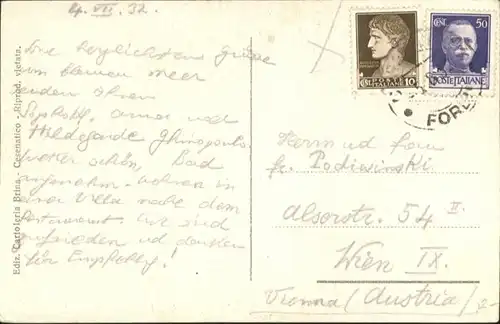 4. VII. 32.
Die herzlichsten Grüsse
vom blauen Meer
senden Ihnen
und
Hildegarde
Wetter schön, Bad
angenehm. Wohnen in
einer Villa nahe dem
Restaurant. Wir sind
zufrieden und danken
für Empfehlg!
Ediz. Cartoleria Brina - Cesenatico - Riprod. vietata.
CENT. 10
POSTE ITALIANE
CENT. 50
POSTE ITALIANE
FOR
Herrn und Frau
Fr. Podiwinski
Alserstr. 54 II.
Wien IX.
Vienna (Austria)